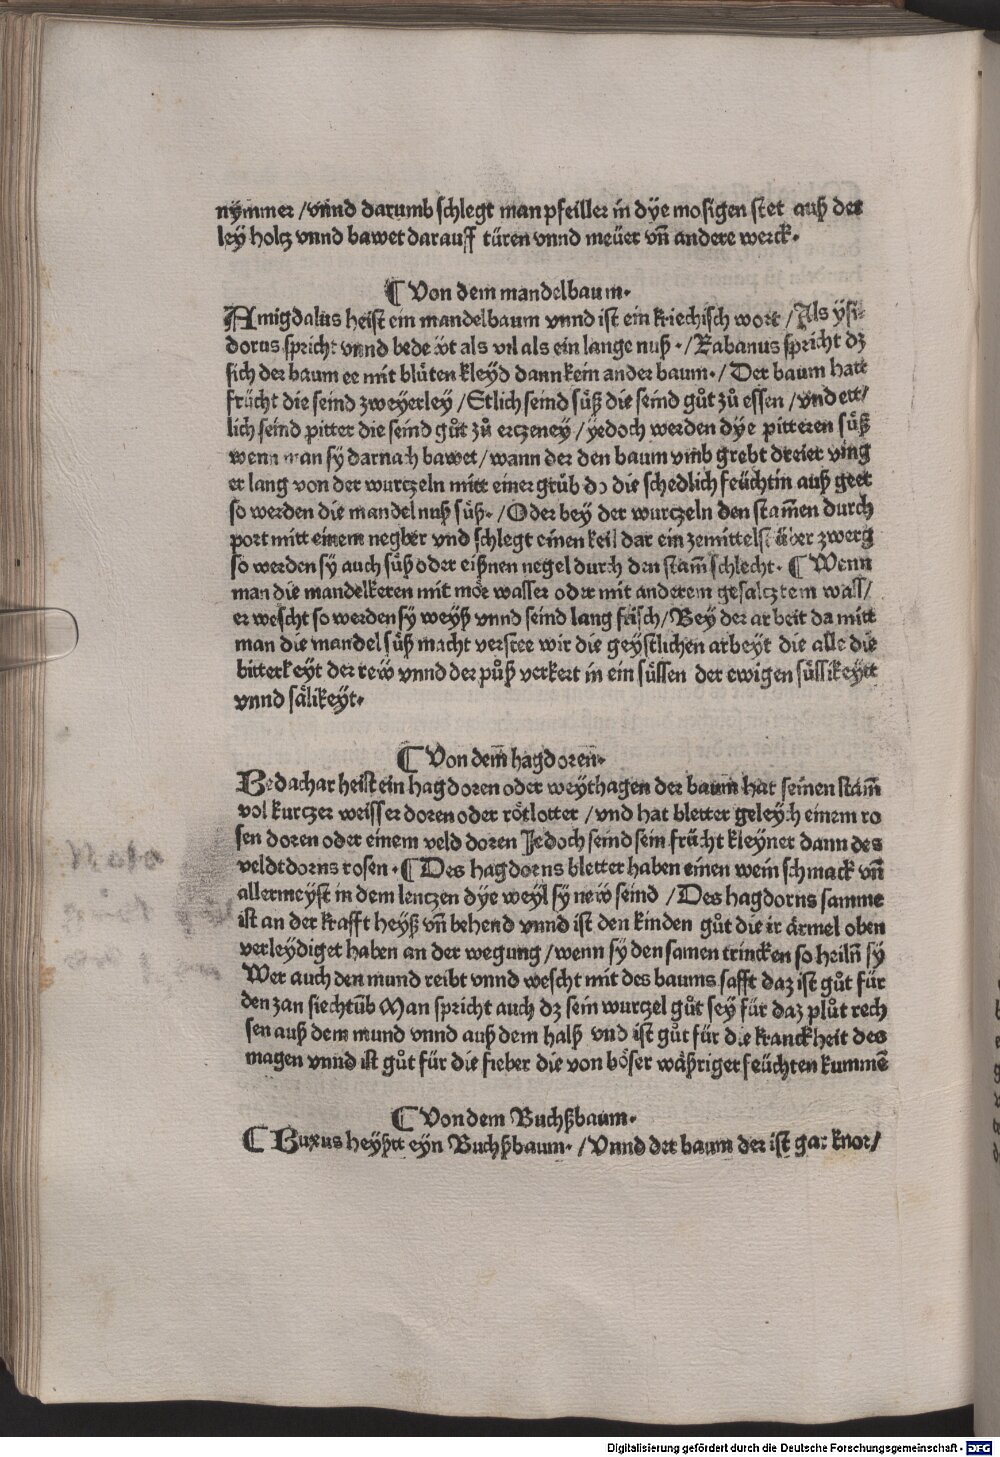 nymmer /vnnd darumb schlegt man pfeiller in dye mosigen stet auß der
ley holtz vnnd bawet darauff türen vnnd meüer vñ andere werck.
¶ Von dem mandelbaum.
Amigdalus heist ein mandelbaum vnnd ist ein kriechisch wort /Als ysi-
dorus spricht vnnd bedeüt als vil als ein lange nuß ./Rabanus spricht dz
sich der baum ee mit blüten kleyd dann kein ander baum./ Der baum hatt
frücht die seind zweyerley /Etlich seind süß die seind gůt zů essen /vnd ett/
lich seind pitter die seind gůt zů ertzeney /yedoch werden dye pitteren süß
wenn man sy darnach bawet/ wann der den baum vmb grebt dreier ving
er lang von der wurtzeln mitt einer grüb do die schedlich feüchtin auß geet
so werden die mandel nuß süß./ Oder bey der wurtzeln den stam̃en durch
port mitt einem negber vnd schlegt einen keil dar ein zemittelst über zwerg
so werden sy auch süß oder eißnen negel durch den stam̃ schlecht. ¶ Wenn
man die mandelkeren mit mör wasser oder mit anderem gesaltztem wass/
er wescht so werden sy weyß vnnd seind lang frisch/ Bey der arbeit da mitt
man die mandel süß macht verstee wir die geystlichen arbeyt die alle die
bitterkeyt der rew vnnd der půß verkert in ein süssen der ewigen süssikeytt
vnnd sälikeyt.
¶ Von dem̃ hagdoren̄.
Bedachar heist ein hagdoren oder weythagen der baum hat seinen stam̃
vol kurtzer weisser doren oder rötlotter /vnd hat bletter geleych einem ro
sen doren oder einem veld doren Jedoch seind sein frücht kleyner dann des
veldtdorns rosen .¶ Des hagdorns bletter haben einen wein schmack vñ
allermeyst in dem lentzen dye weyl sy new seind /Des hagdorns samme
ist an der krafft heyß vñ behend vnnd ist den kinden gůt die ir ärmel oben
verleydiget haben an der wegung /wenn sy den samen trincken so heiln̄ sy
Wer auch den mund reibt vnnd wescht mit des baums safft daz ist gůt für
den zan siechtũb Man spricht auch dz sein wurtzel gůt sey für daz plůt rech
sen auß dem mund vnnd auß dem halß vnd ist gůt für die kranckheit des
magen vnnd ist gůt für die fieber die von böser wäßriger feüchten kummẽ
¶ Von dem Buchßbaum.
¶ Buxus heyßtt eyn Buchßbaum. /Vnnd der baum der ist gar knor/
Digitalisierung gefördert durch die Deutsche Forschungsgemeinschaft - DFG